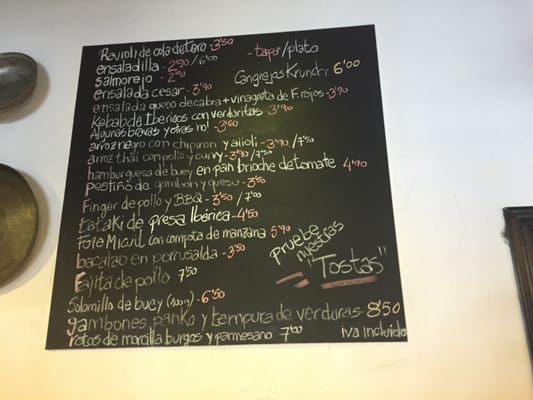 Ravioli de cola de toro - 3'50
- tapa/plato
ensaladilla - 2'90/6'00
salmorejo - 2'90
Cangrejas Krunch 6'00
ensalada cesar - 3'90
ensalada queso de cabra + vinagreta de F. rojos - 3'90
Kebab de Ibericos con verduritas - 3'90
Algunas bravas y otras no! - 3'60
arroz negro con chipiron y aiioli - 3'90/7'50
arroz thai con pollo y curry - 3'90/7'50
hamburguesa de buey en pan brioche de tomate 4'90
pestiño de gambon y queso - 3'50
Finger de pollo y BBQ - 3'50/7'00
tataki de presa Ibérica - 4'50
Foie Micuit con compota de manzana 5'90
bacalao en porrusalda - 3'50
Pruebe nuestras
"Tostas"
Fajita de pollo 7'50
Solomillo de buey (100g) - 6'50
gambones panko y tempura de verduras - 8'50
rotos de morcilla burgos y parmesano 7'00
iva incluido